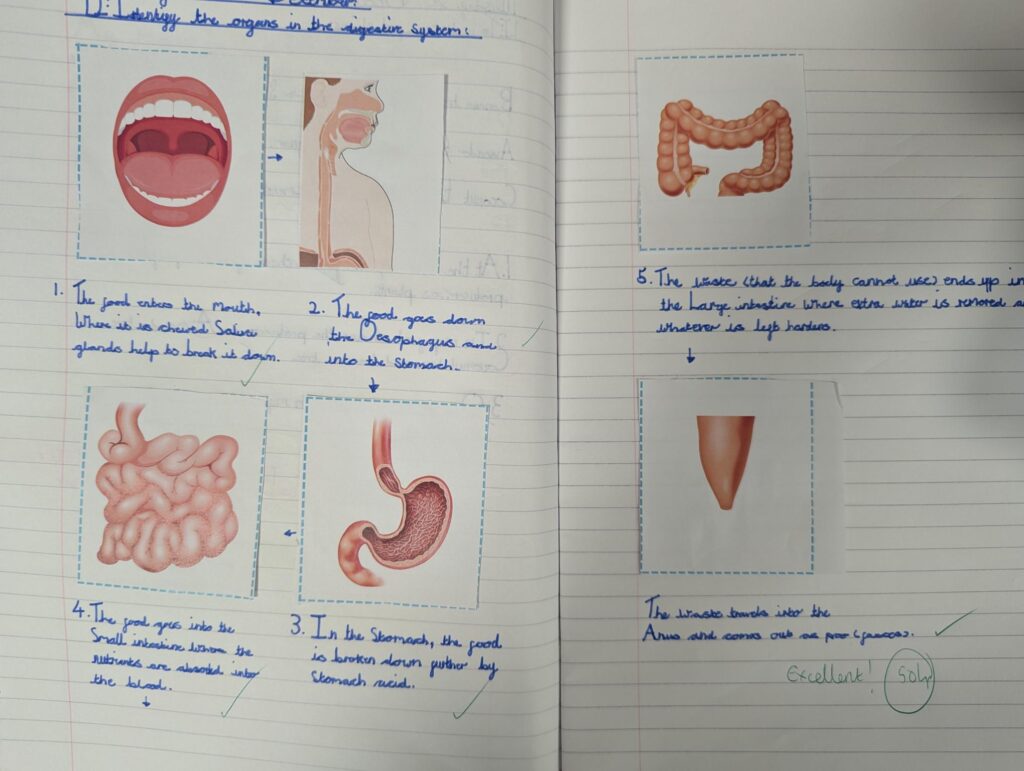 LI: Identify the organs in the digestive system:
1. The food enters the Mouth,
Where it is chewed Saliva
glands help to break it down.
2. The food goes down
the Oesophagus and
into the Stomach.
4. The food goes into the
Small intestine where the
nutrients are absorbed into
the blood.
3. In the Stomach, the food
is broken down further by
Stomach acid.
5. The waste (that the body cannot use) ends up in
the Large intestine where extra water is removed
whatever is left hardens.
The waste travels into the
Anus and comes out as poo (faeces).
Excellent!